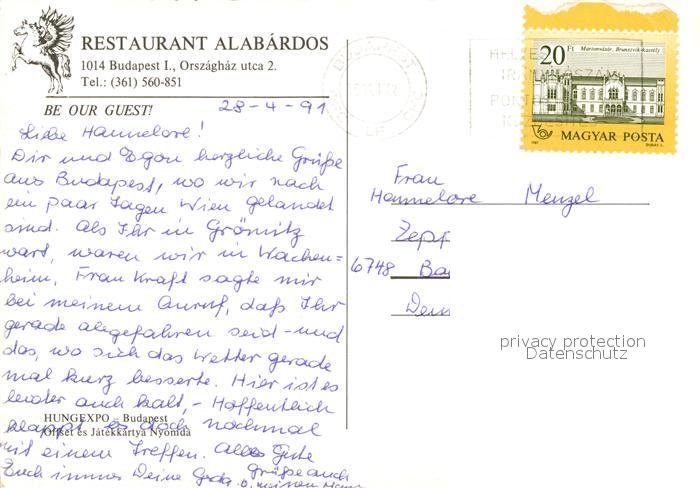 RESTAURANT ALABÁRDOS
1014 Budapest I., Országház utca 2.
Tel.: (361) 560-851
BE OUR GUEST!
28-4-91
Liebe Hannelore!
Dir und Egon herzliche Grüße
aus Budapest, wo wir nach
ein paar Tagen Wien gelandet
sind. Als Ihr in Grömitz
wart, waren wir in Wachen=
heim. Frau Kraft sagte mir
bei meinem Anruf, daß Ihr
gerade abgefahren seid - und
das, wo sich das Wetter gerade
mal kurz besserte. Hier ist es
leider auch kalt, - Hoffentlich
klappt es doch nochmal
mit einem Treffen. Alles Gute
Euch immer Deine Gerda
Grüße auch
v. meinem
HUNGEXPO – Budapest
Offset és Játékkártya Nyomda
20 Ft
Martonvásár, Brunszvik-kastély
MAGYAR POSTA
1987
BUDAPEST
Frau
Hannelore Menzel
Zepp
6748 Ba
privacy protection
Datenschutz